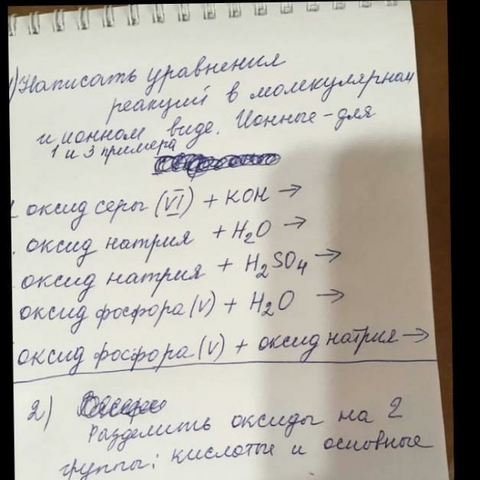 1) Написать уравнения
реакций в молекулярном
и ионном виде. Ионные - для
1 и 3 примера
1. оксид серы (VI) + KOH →
. оксид натрия + H₂O →
оксид натрия + H₂SO₄ →
оксид фосфора (V) + H₂O →
оксид фосфора (V) + оксид натрия →
2)
Разделить оксиды на 2
группы: кислотые и основные